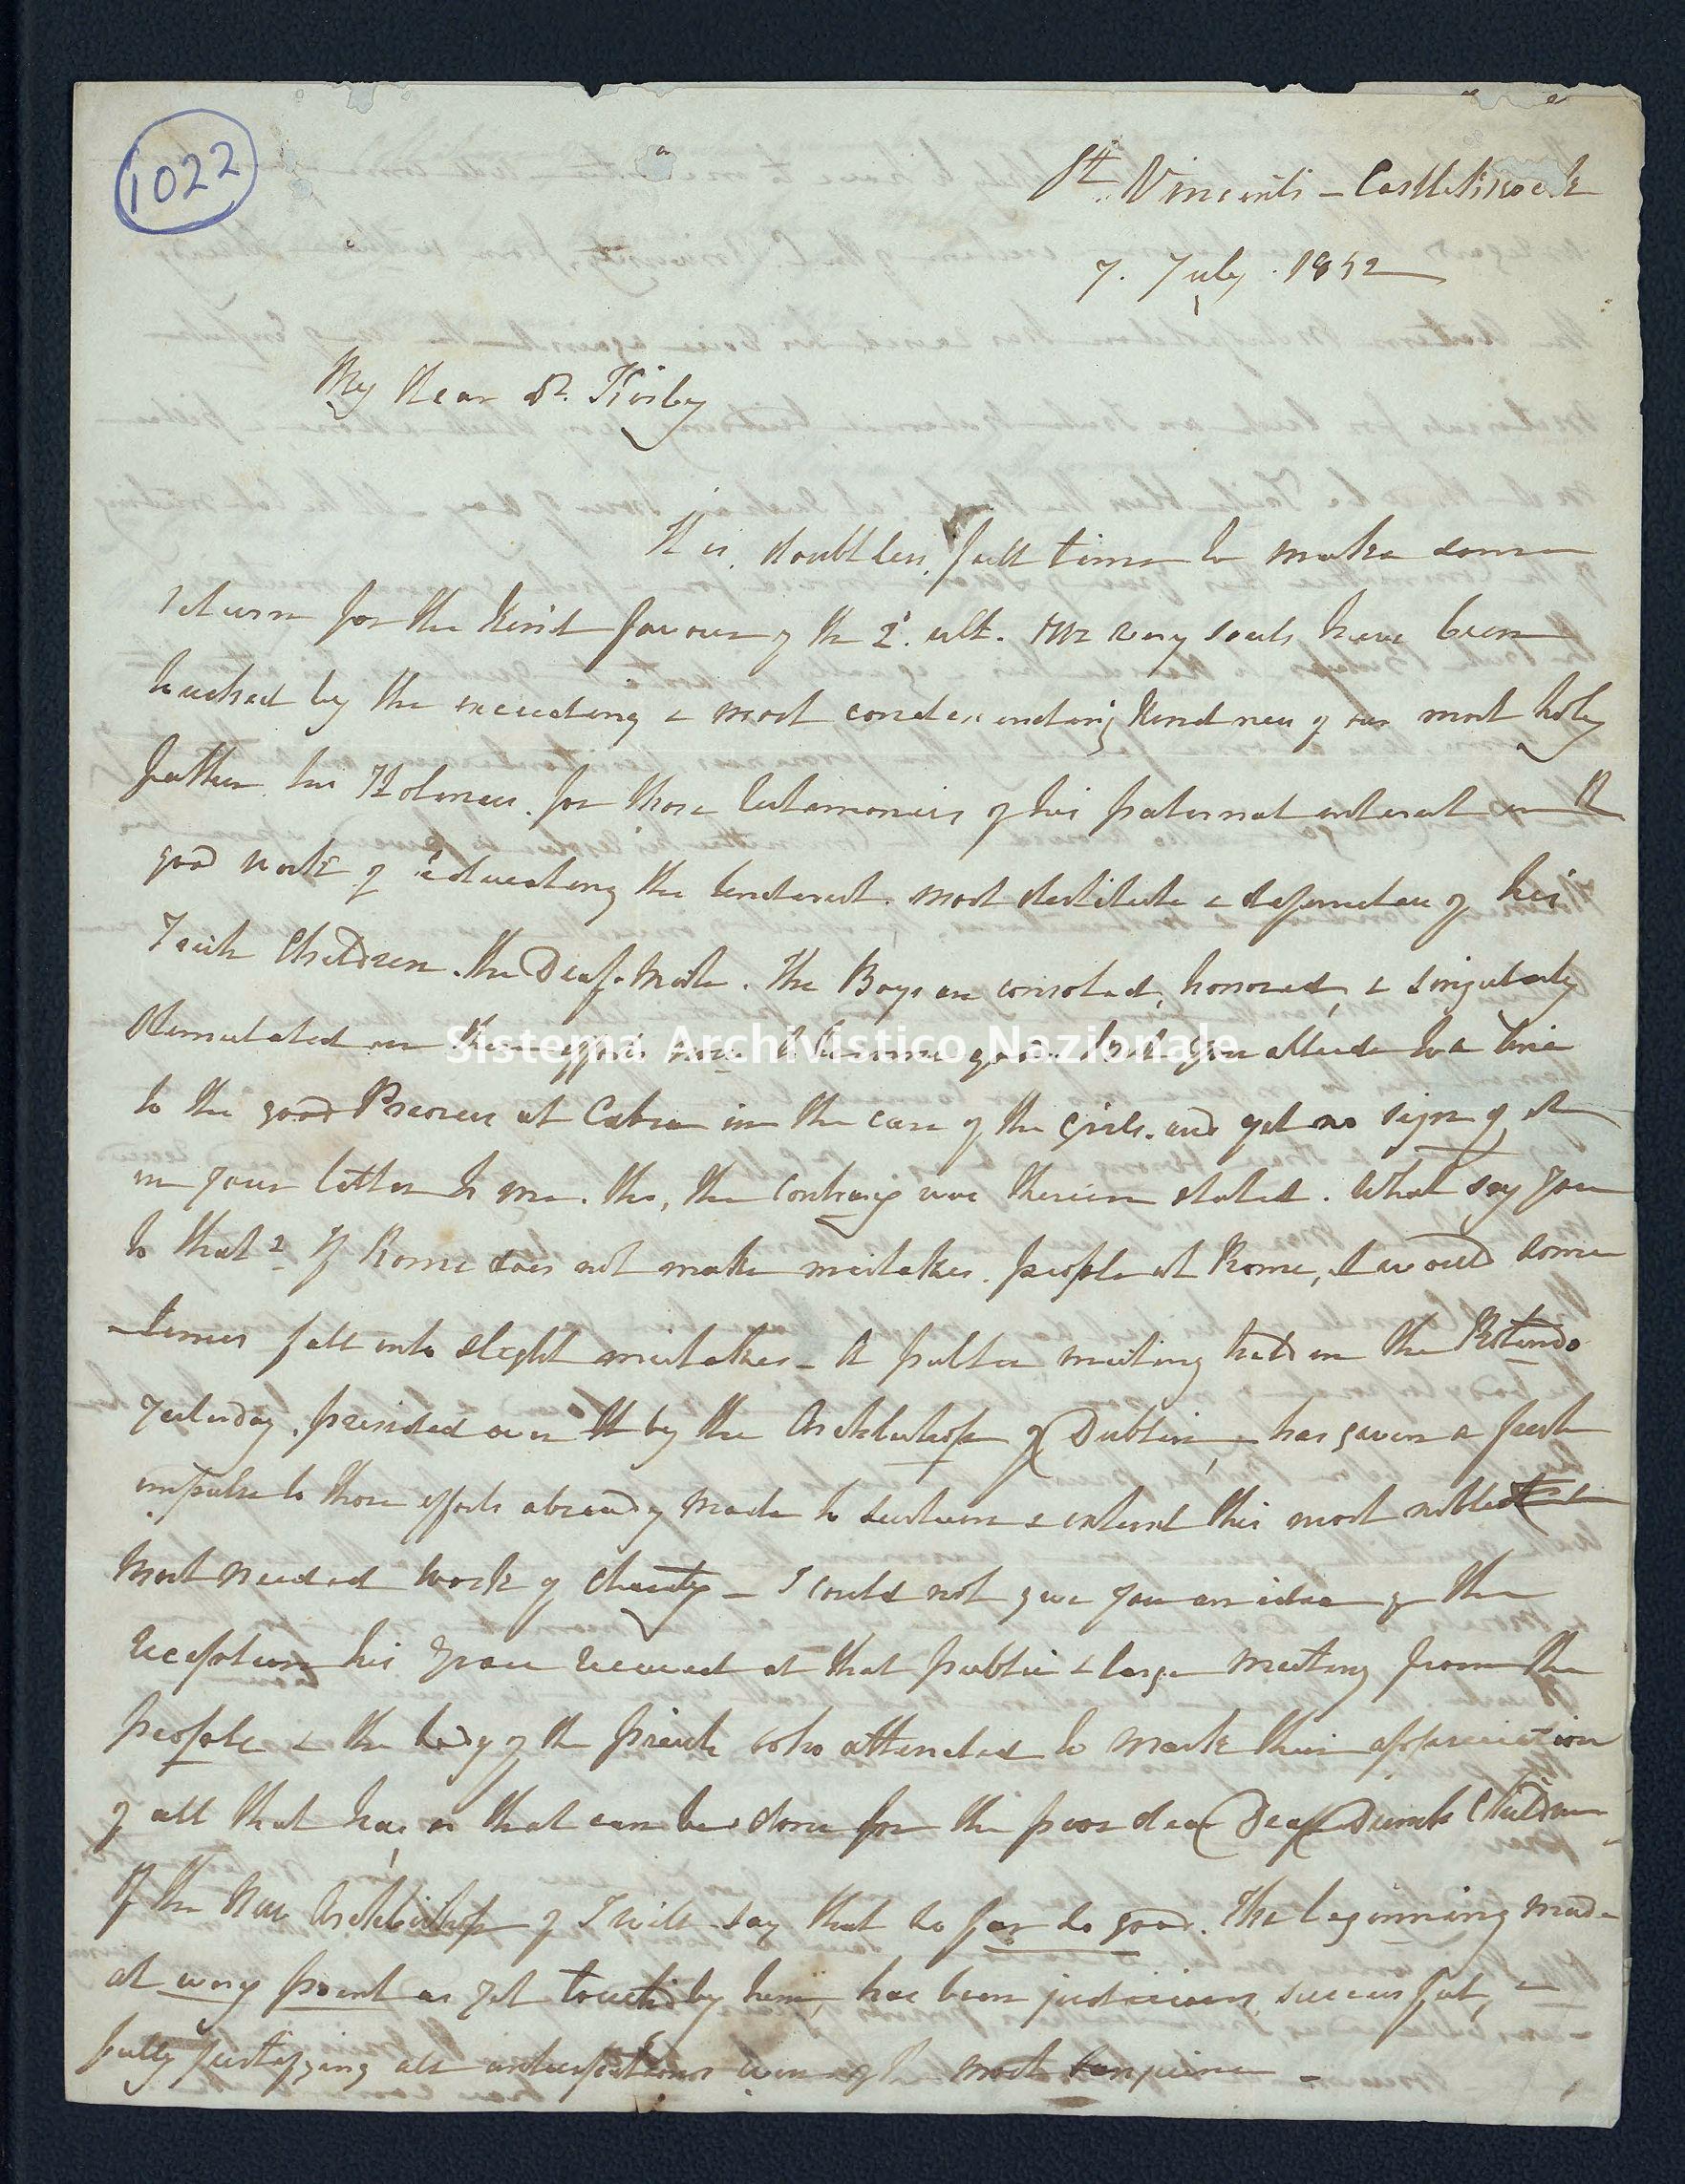 1022
St. Vincent's – Castleknock
7. July. 1852
My dear Dr. Kirby
It is, doubtless, full time to make some
return for the kind favour of the 2d. ult. Our very souls have been
touched by the exceeding & most condescending kindness of our most holy
father, his Holiness, for those testimonies of his paternal interest in the
good work of educating the tenderest, most destitute & defenceless of his
Irish Children, the Deaf-Mute. The Boys are consoled, honored, & singularly
stimulated in their efforts now to become good. But you allude to a line
to the good Prioress at Cabra in the case of the girls, and yet no sign of it
in your letter to me, tho, the contrary was therein stated. What say you
to that? If Rome does not make mistakes, people at Rome, it would some
-times fall into slight mistakes – A public meeting held in the Rotundo
yesterday, presided over by the Archbishop of Dublin, has given a fresh
impulse to those efforts already made to sustain & extend this most noble &
most needed work of charity – I could not give you an idea of the
reception his Grace received at that public & large meeting from the
people & the body of the priests who attended to mark their appreciation
of all that has or that can be done for the poor dear Deaf Dumb Children
Of the New Archbishop I will say that so far so good. The beginning made
at every point as yet touched by him, has been judicious, successful, &
fully justifying all anticipations even of the most sanguine –
Sistema Archivistico Nazionale